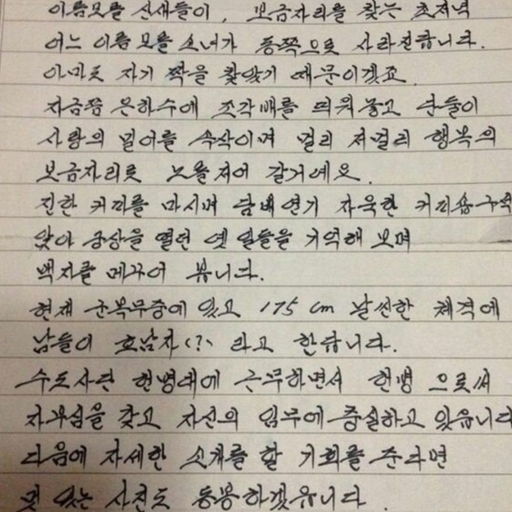 이름모를 산새들이, 보금자리를 찾는 초저녁
어느 이름모를 소녀가 동쪽으로 사라진답니다.
아마도 자기 짝을 찾았기 때문이겠죠.
지금쯤 은하수에 조각배를 띄워 놓고 단둘이
사랑의 밀어를 속삭이며 멀리 저멀리 행복의
보금자리로 노를저어 갈거예요.
진한 커피를 마시며 담배연기 자욱한 커피숍구석
앉아 공상을 했던 옛 일들을 기억해 보며
백지를 메꾸어 봅니다.
현재 군복무중에 있고 175 cm 날씬한 체격에
남들이 호남자(?) 라고 한답니다.
수도사단 헌병대에 근무하면서 헌병 으로써
자부심을 갖고 자신의 임무에 충실하고 있읍니다
다음에 자세한 소개를 할 기회를 준다면
멋 있는 사진도 동봉하겠읍니다.